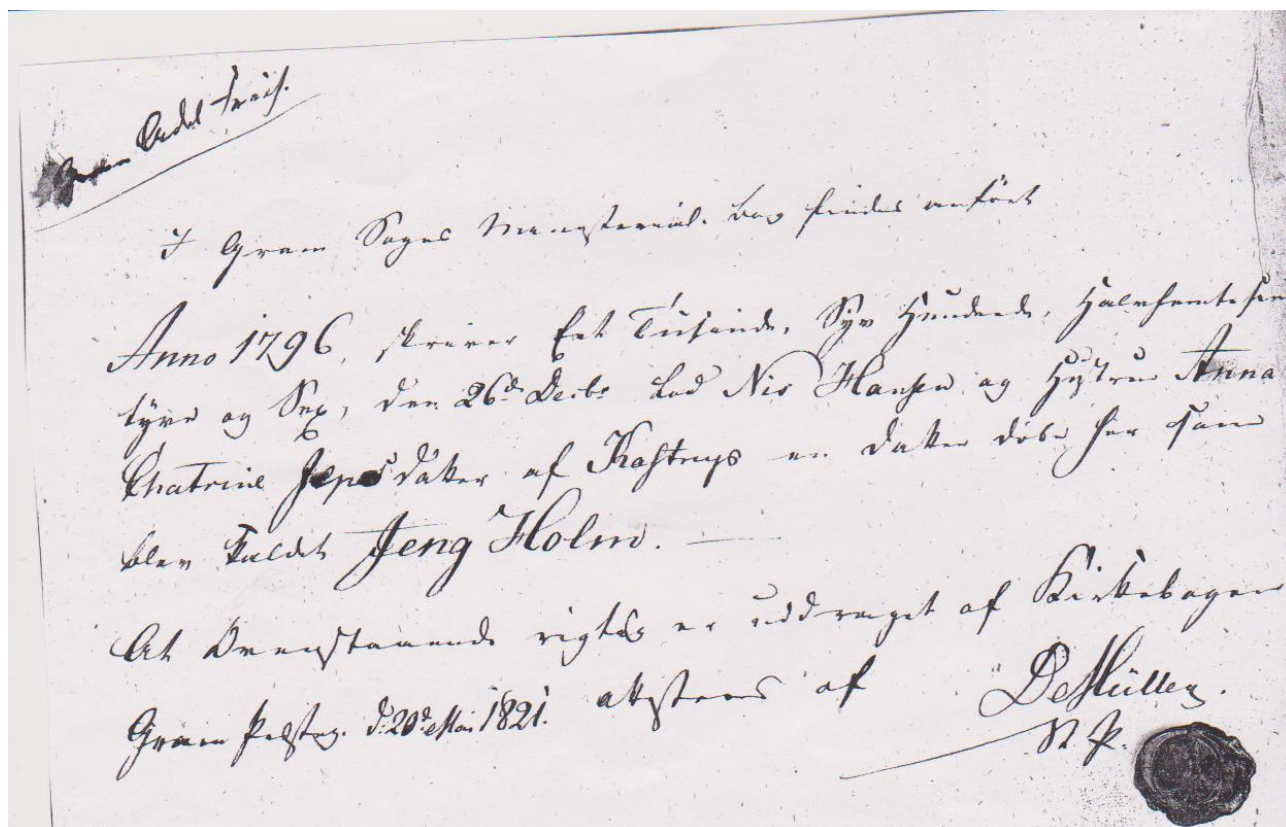 Gram
I Gram Sogns Ministerial. bog findes anført
Anno 1796, skriver Eet Tusinde, Syv Hundrede, Halvfemtesinds
tyve og Sex, den 26d. Decbr lod Nis Hansen og Hustrue Anna
Chatrine Jepsdatter af Kastrup en Datter døbe her som
blev kaldet Jeng Holm. —
At Ovenstaaende rigtig er uddraget af Kirkebogen
attesteres af DeMüller.
Gram Præsteg. d. 20d. Mai 1821.